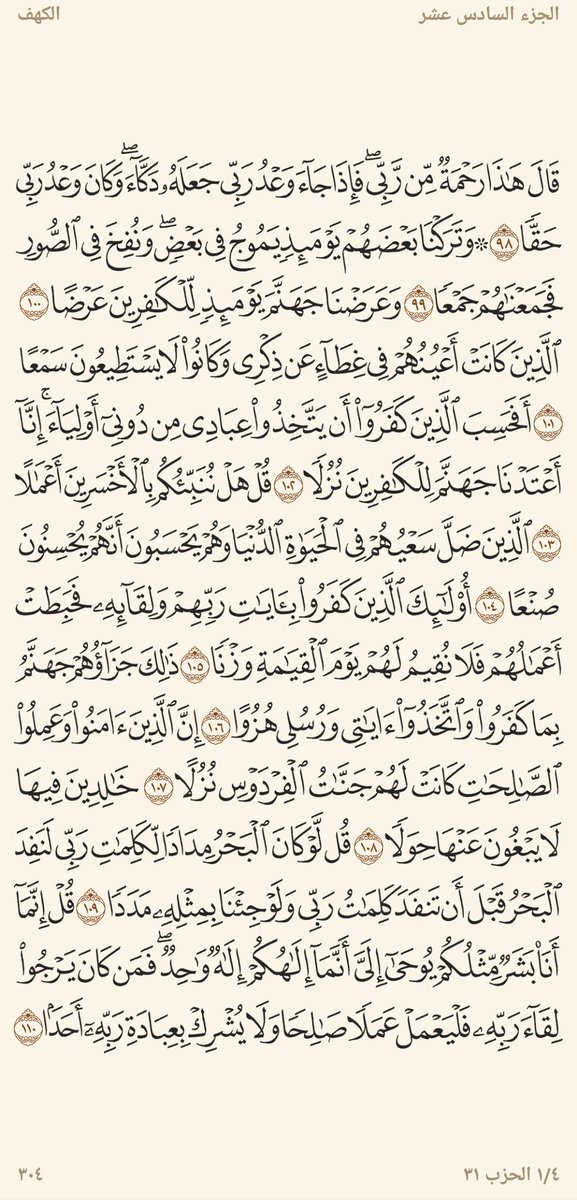 الجزء السادس عشر
الكهف
قَالَ هَٰذَا رَحْمَةٌ مِّن رَّبِّي ۖ فَإِذَا جَآءَ وَعْدُ رَبِّي جَعَلَهُۥ دَكَّآءَ ۖ وَكَانَ وَعْدُ رَبِّي
حَقًّا ٩٨ ۞ وَتَرَكْنَا بَعْضَهُمْ يَوْمَئِذٍ يَمُوجُ فِي بَعْضٍ ۖ وَنُفِخَ فِي ٱلصُّورِ
فَجَمَعْنَٰهُمْ جَمْعًا ٩٩ وَعَرَضْنَا جَهَنَّمَ يَوْمَئِذٍ لِّلْكَٰفِرِينَ عَرْضًا ١٠٠
ٱلَّذِينَ كَانَتْ أَعْيُنُهُمْ فِي غِطَآءٍ عَن ذِكْرِي وَكَانُوا۟ لَا يَسْتَطِيعُونَ سَمْعًا
١٠١ أَفَحَسِبَ ٱلَّذِينَ كَفَرُوٓا۟ أَن يَتَّخِذُوا۟ عِبَادِي مِن دُونِيٓ أَوْلِيَآءَ ۚ إِنَّآ
أَعْتَدْنَا جَهَنَّمَ لِلْكَٰفِرِينَ نُزُلًا ١٠٢ قُلْ هَلْ نُنَبِّئُكُم بِٱلْأَخْسَرِينَ أَعْمَٰلًا
١٠٣ ٱلَّذِينَ ضَلَّ سَعْيُهُمْ فِي ٱلْحَيَوٰةِ ٱلدُّنْيَا وَهُمْ يَحْسَبُونَ أَنَّهُمْ يُحْسِنُونَ
صُنْعًا ١٠٤ أُو۟لَٰٓئِكَ ٱلَّذِينَ كَفَرُوا۟ بِـَٔايَٰتِ رَبِّهِمْ وَلِقَآئِهِۦ فَحَبِطَتْ
أَعْمَٰلُهُمْ فَلَا نُقِيمُ لَهُمْ يَوْمَ ٱلْقِيَٰمَةِ وَزْنًا ١٠٥ ذَٰلِكَ جَزَآؤُهُمْ جَهَنَّمُ
بِمَا كَفَرُوا۟ وَٱتَّخَذُوٓا۟ ءَايَٰتِي وَرُسُلِي هُزُوًا ١٠٦ إِنَّ ٱلَّذِينَ ءَامَنُوا۟ وَعَمِلُوا۟
ٱلصَّٰلِحَٰتِ كَانَتْ لَهُمْ جَنَّٰتُ ٱلْفِرْدَوْسِ نُزُلًا ١٠٧ خَٰلِدِينَ فِيهَا
لَا يَبْغُونَ عَنْهَا حِوَلًا ١٠٨ قُل لَّوْ كَانَ ٱلْبَحْرُ مِدَادًا لِّكَلِمَٰتِ رَبِّي لَنَفِدَ
ٱلْبَحْرُ قَبْلَ أَن تَنفَدَ كَلِمَٰتُ رَبِّي وَلَوْ جِئْنَا بِمِثْلِهِۦ مَدَدًا ١٠٩ قُلْ إِنَّمَآ
أَنَا۠ بَشَرٌ مِّثْلُكُمْ يُوحَىٰٓ إِلَيَّ أَنَّمَآ إِلَٰهُكُمْ إِلَٰهٌ وَٰحِدٌ ۖ فَمَن كَانَ يَرْجُوا۟
لِقَآءَ رَبِّهِۦ فَلْيَعْمَلْ عَمَلًا صَٰلِحًا وَلَا يُشْرِكْ بِعِبَادَةِ رَبِّهِۦٓ أَحَدًۢا ١١٠
١/٤ الحزب ٣١
٣٠٤